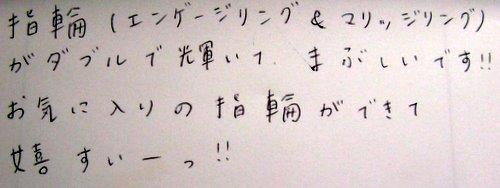 指輪(エンゲージリング&マリッジリング)
がダブルで光輝いて、まぶしいです!!
お気に入りの指輪ができて
嬉すいーっ!!